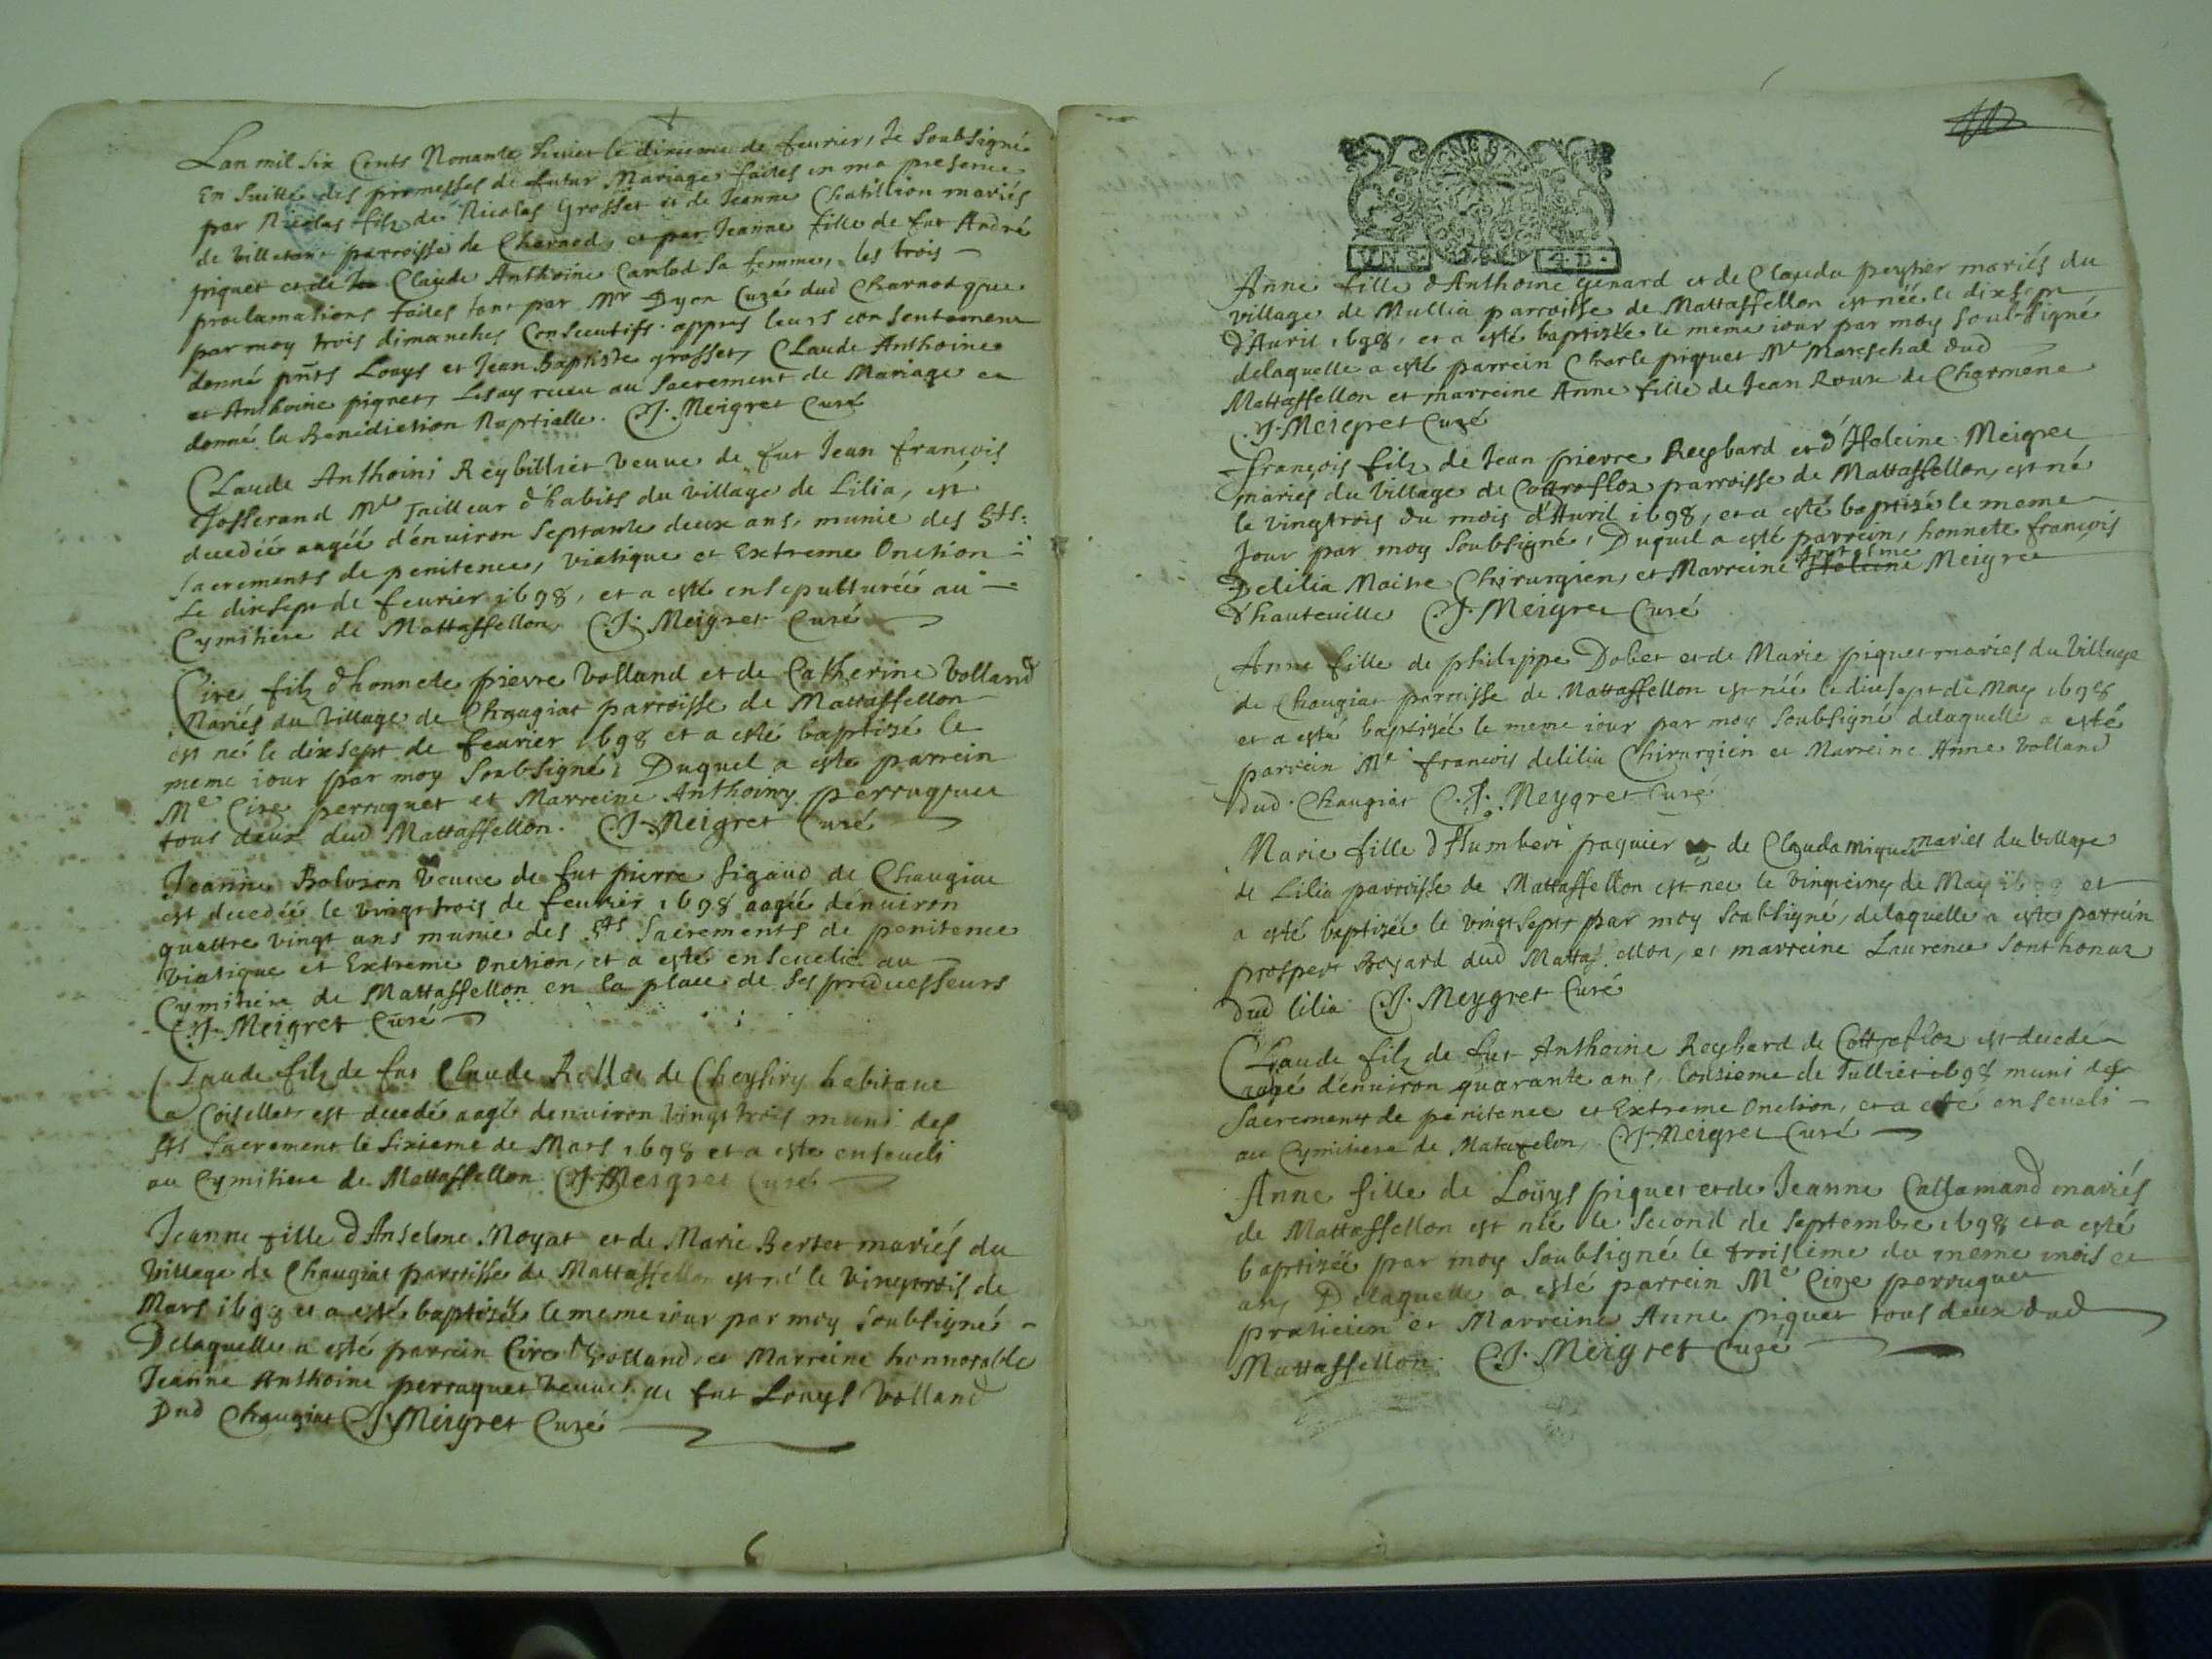 Lan mil six Cents Nonante huict le dixieme de feurier, Je Soubsigné
En suitte des promesses de futur Mariage faites en ma presence
par Nicolas filz de Nicolas Grosset et de Jeanne Chatillion mariés
de Villetan parroisse de Charnod, et par Jeanne fille de fut André
piquet et de Claude Anthoine Carlod sa femme, les trois
proclamations faites tant par Mr Dyon Curé dud Charnod que
par moy trois dimanches Consecutifs. appres leurs consentement
donné pnts Louys et Jean Baptiste grosset, Claude Anthoine
et Anthoine piquet, Lesay receu au Sacrement de Mariage et
donné la Benediction Nuptialle. C.J. Meigret Curé
Claude Anthoine Reybilliet veuue de fut Jean françois
Josserand Me Tailleur d'habits du village de Lilia, est
decedéé aagéé d'enuiron Septante deux ans, munie des Sts
Sacrements de penitence, Viatique et Extreme Onction
Le dixsept de feurier 1698, et a esté ensepulturéé au
Cymitiere de Mattaffellon, C.J. Meigret Curé
Cire filz d'honnete pierre Volland et de Catherine Volland
Mariés du village de Chaugiat parroisse de Mattaffellon
est né le dixsept de feurier 1698 et a esté baptizé le
meme iour par moy Soubsigné, Duquel a este parrein
Me Cire perruquet et Marreine Anthoiny perruquet
tous deux dud Mattaffellon. C.J. Meigret Curé
Jeanne Bolozon Veuue de fut pierre figaud de Chaugiat
est decedéé le vingt trois de feurier 1698 aagéé d'enuiron
quattre vingt ans munie des Sts Sacrements de penitence
Viatique et Extreme Onction, et a esté enseuelie au
Cymitiere de Mattaffellon en la place de ses predecesseurs
C.J. Meigret Curé
Claude filz de fut Claude Rollet de Cheysiry habitant
a Coisellet est decedé aagé denuiron vingt trois muni des
Sts Sacrement le Sixieme de Mars 1698 et a este enseueli
au Cymitiere de Mattaffellon C.J. Meigret Curé
Jeanne fille d'Anselme Moyat et de Marie Bertet mariés du
Village de Chaugiat parroisse de Mattaffellon est né le Vingt trois de
Mars 1698 et a esté baptizéé le meme iour par moy Soubsigné
Delaquelle a esté parrein Cire Volland, et Marreine honnorable
Jeanne Anthoine perruquet veuue de fut Louys Volland
Dud Chaugiat C.J. Meigret Curé
6
VN S. 4 D.
Anne fille d'Anthoine Genard et de Clauda peytier mariés du
village de Mullia parroisse de Mattaffellon est née le dixsept
d'Auril 1698, et a esté baptizée le meme iour par moy Soubsigné
delaquelle a esté parrein Charle piquet Me Mareschal dud
Mattaffellon et marreine Anne fille de Jean Roux de Charmene
C.J. Meigret Curé
françois filz de Jean pierre Reybard et d'Heleine Meigret
mariés du Village de Cottrofloz parroisse de Mattaffellon, est né
le vingtrois du mois d'Auril 1698, et a esté baptizé le meme
Jour par moy Soubsigné, Duquel a esté parrein, honnete françois
Delilia Maitre Chirurgien, et Marreine Heleine Meigret
d'hauteuille C.J. Meigret Curé
Anne fille de philippe Dobet et de Marie piquet mariés du Village
de Chaugiat parroisse de Mattaffellon est née le dixsept de May 1698
et a esté baptizéé le meme iour par moy Soubsigné delaquelle a esté
parrein Me françois delilia Chirurgien et Marreine Anne Volland
dud Chaugiat C.J. Meygret Curé
Marie fille d'Humbert paquier de Clauda Miquet mariés du village
de Lilia parroisse de Mattaffellon est nee le vingtcinq de May et
a esté baptizéé le vingt Sept par moy Soubsigné, delaquelle a este parrein
prosper Boyard dud Mattaffellon, et marreine Laurence Sonthonax
dud lilia C.J. Meygret Curé
Claude filz de fut Anthoine Reybard de Cottrofloz est decedé
aagé d'enuiron quarante ans, Lonzieme de Julliet 1698 muni des
Sacrements de penitence et Extreme Onction, et a esté enseueli
au Cymitiere de Matafelon, C.J. Meigret Curé
Anne fille de Loüys piquet et de Jeanne Callamand mariés
de Mattaffellon est née le Second de Septembre 1698 et a esté
baptizéé par moy Soubsigné le troisieme du meme mois et
an, Delaquelle a esté parrein Me Cire perruquet
praticien et Marreine Anne piquet tous deux dud
Mattaffellon. C.J. Meigret Curé